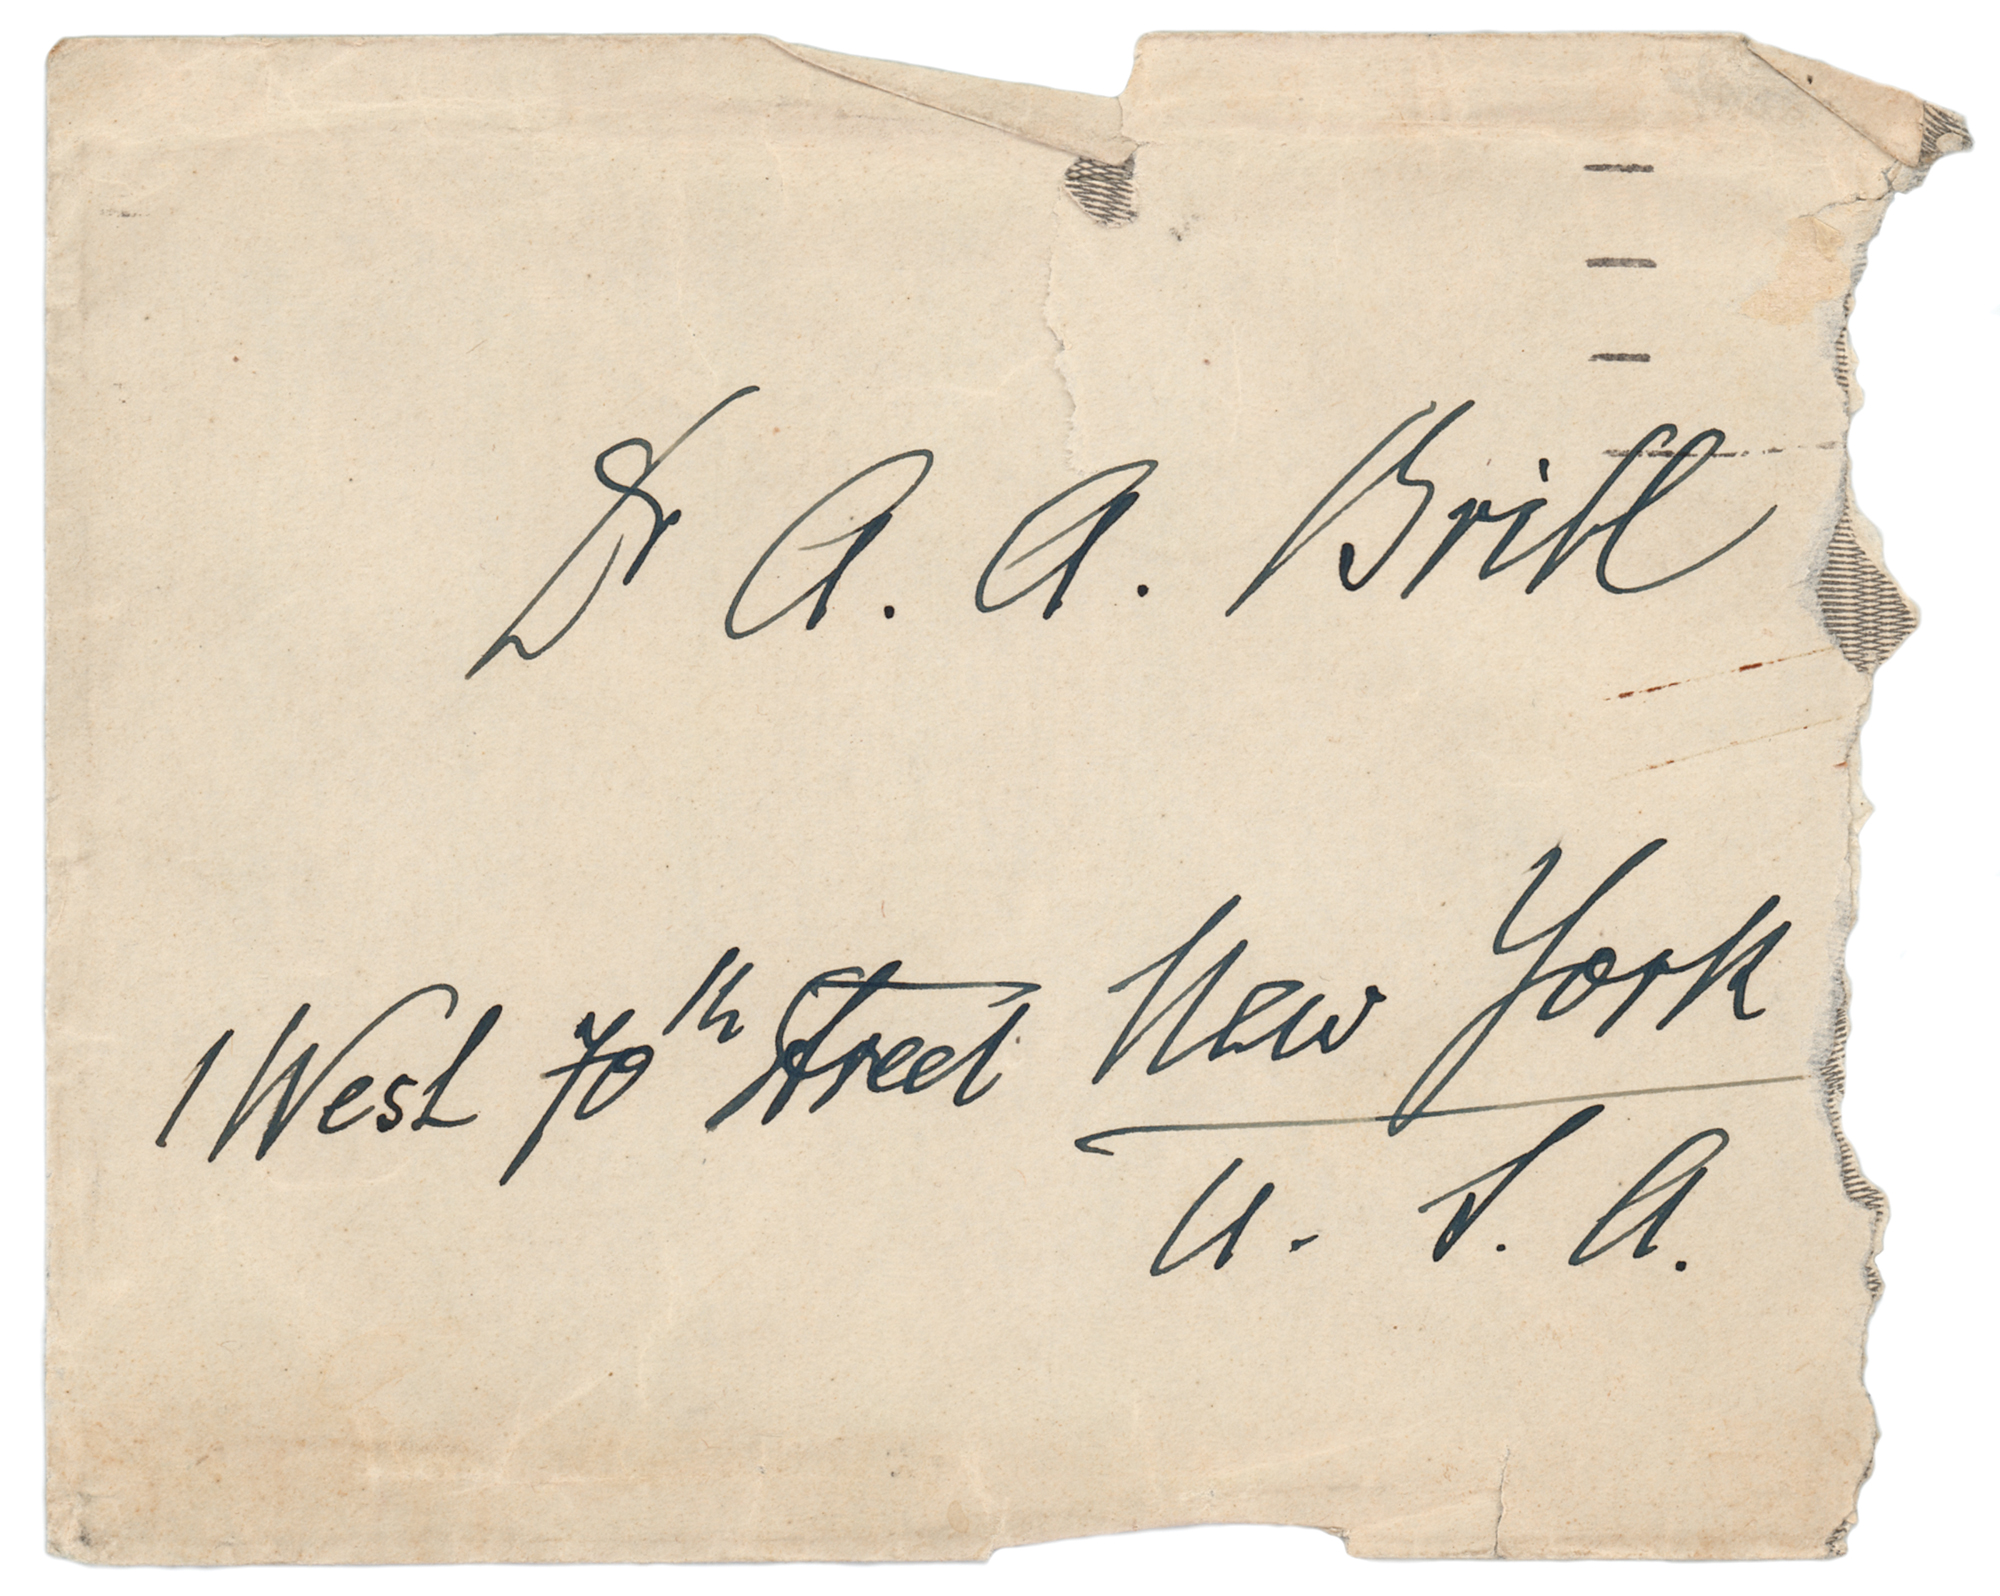 Dr A. A. Brill
1 West 70th Street New York
U. S. A.